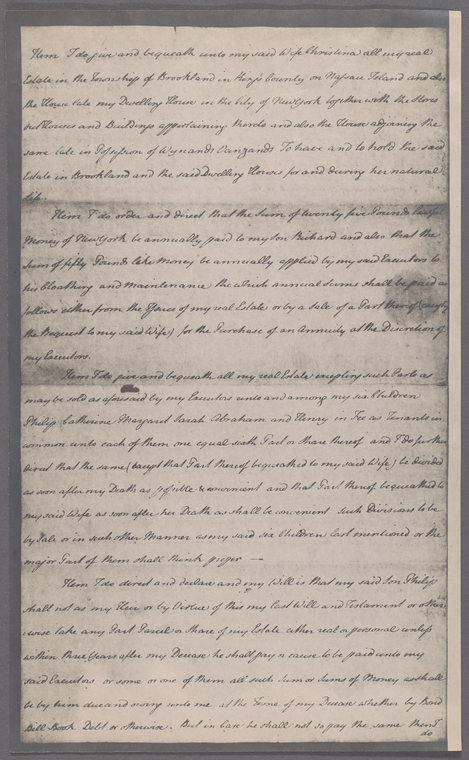 Item I do give and bequeath unto my said Wife Christina all my real
Estate in the Township of Brookland in Kings County on Nassau Island and also
the House late my Dwelling House in the City of New York together with the Stores
outHouses and Buildings appertaining thereto and also the House adjoining the
same late in Possession of Wynandt Vanzandt To have and to hold the said
Estate in Brookland and the said Dwelling Houses for and during her natural
life.
Item I do order and direct that the Sum of twenty five Pounds lawful
Money of New York be annually paid to my Son Richard and also that the
Sum of fifty Pounds like Money be annually applied by my said Executors to
his Cloathing and Maintenance the which annual Sums shall be paid as
follows either from the of my real Estate or by a Sale of a Part thereof (except
the Bequest to my said Wife) for the Purchase of an Annuity at the Discretion of
my Executors.
Item I do give and bequeath all my real Estate excepting such Parts as
may be sold as aforesaid by my Executors unto and among my six Children
Philip Catherine Margaret Sarah Abraham and Henry in Fee as Tenants in
common unto each of them one equal sixth Part or Share thereof and I do further
direct that the same (except that Part thereof bequeathed to my said Wife) be divided
as soon after my Death as possible & convenient and that Part thereof bequeathed to
my said Wife as soon after her Death as shall be convenient such Divisions to be
by Sale or in such other Manner as my said six Children last mentioned or the
major Part of them shall think proper —
Item I do direct and declare and my Will is that my said Son Philip
shall not as my Heir or by Virtue of this my last Will and Testament or other
wise take any Part Parcel or Share of my Estate either real or personal unless
within three Years after my Decease he shall pay or cause to be paid unto my
said Executors or some or one of them all such Sum or Sums of Money as shall
be by him due and owing unto me at the Time of my Decease whether by Bond
Bill Book Debt or otherwise. But in Case he shall not so pay the same then I
do